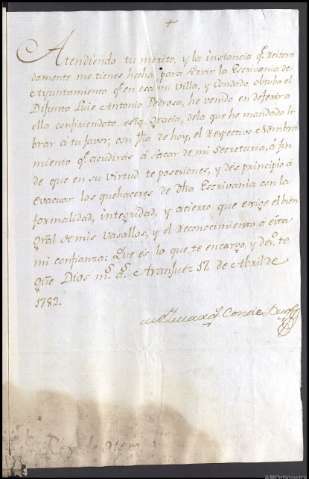 +
Atendiendo tu merito, y la instancia qe reitera
damente me tienes hecha para servir la Escrivania de
Ayuntamiento qe en esa mi Villa, y Condado obtubo el
Difunto Luis Antonio Pedrosa, he venido en deferir a
ello confiriendote esta Gracia, de la que he mandado li
brar a tu favor, con fha de hoy, el respectivo Nombra
miento qe acudiras á sacar de mi Secretaria, á fin
de que en su virtud te posesiones, y des principio á
evacuar los quehaceres de dha Escrivania con la
formalidad, integridad, y acierto que exige el bien
Gral de mis Vasallos, y el reconocimiento a esta
mi confianza: Que es lo que te encargo, y deso te
Gue Dios ms as Aranjuez 17 de Abril de
1782.
Conde